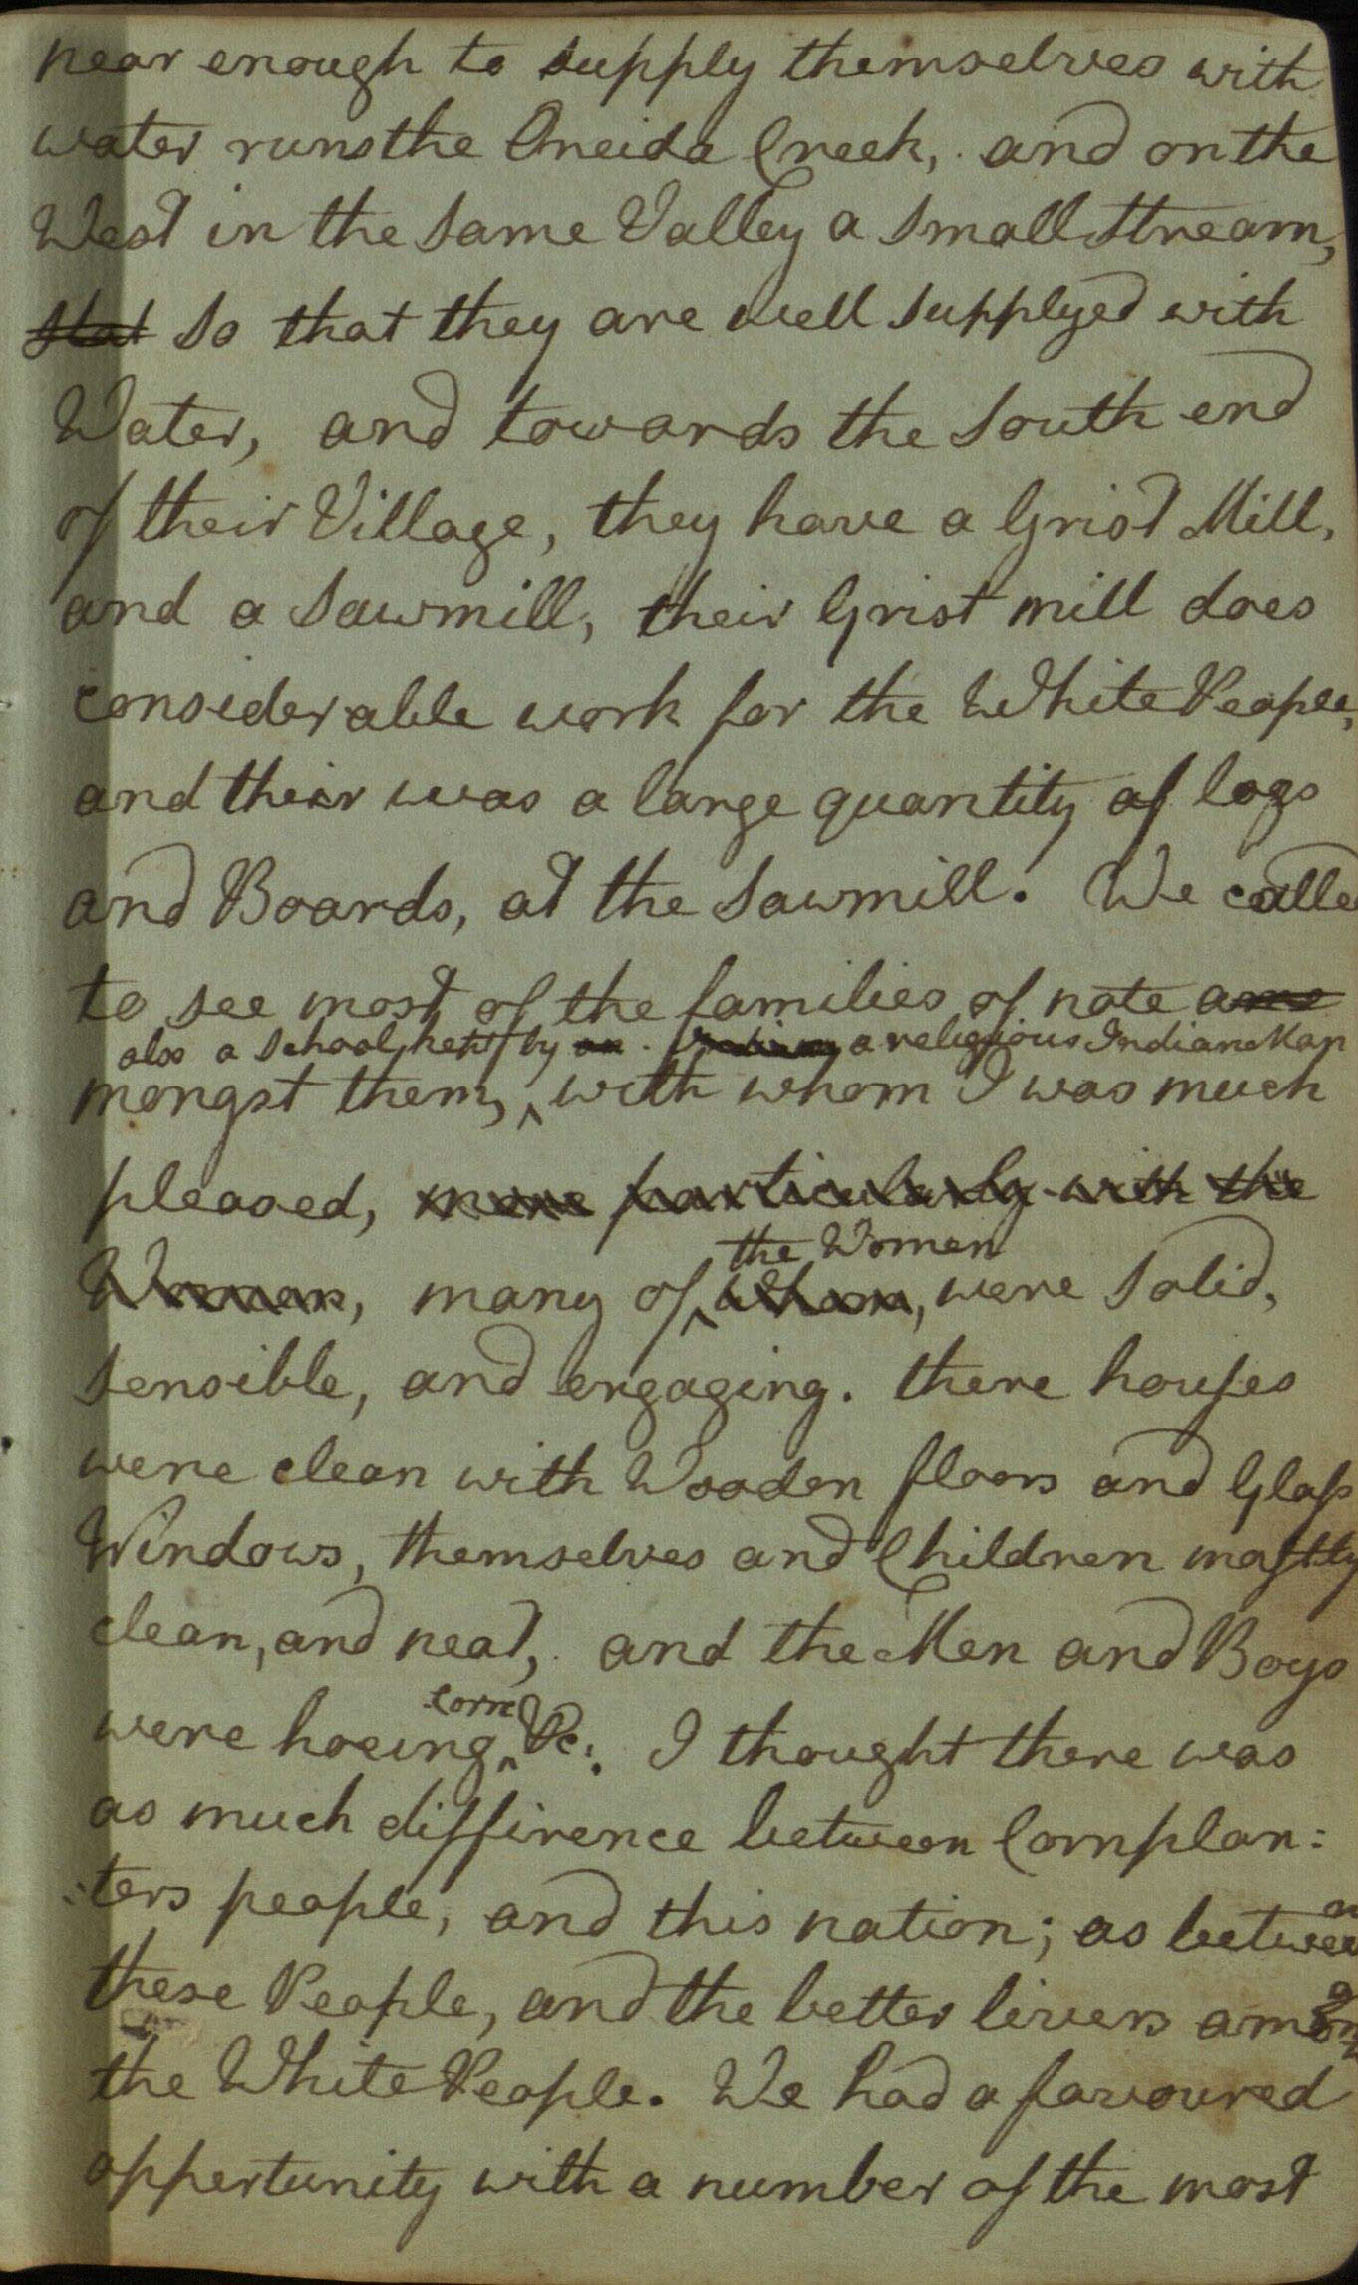 near enough to supply themselves with
water runs the Oneida Creek, and on the
West in the same Valley a small stream,
so that they are well supplyed with
Water, and towards the south end
of their Village, they have a Grist Mill,
and a sawmill, their Grist mill does
considerable work for the White People,
and their was a large quantity of logs
and Boards, at the sawmill. We called
to see most of the families of note a
also a school, kept by a religious Indian Man
mongst them, with whom I was much
pleased, more particularly with the
the Women
Women, many of whom, were solid,
sensible, and engaging. there houses
were clean with Wooden floors and Glass
Windows, themselves and Children mostly
clean, and neat, and the Men and Boys
corn
were hoeing &c. I thought there was
as much diffirence between Cornplan:
:ters people, and this nation; as between
these People, and the better livers among
the White People. We had a favoured
oppertunity with a number of the most